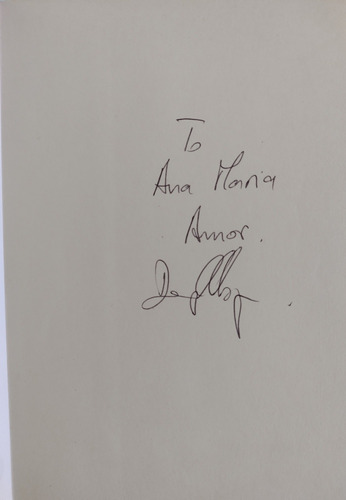 To
Ana Maria
Amor.